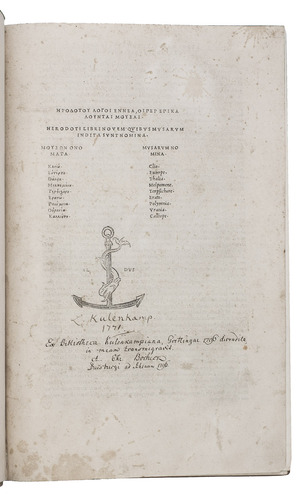 ΗΡΟΔΟΤΟΥ ΛΟΓΟΙ ΕΝΝΕΑ, ΟΙΠΕΡ ΕΠΙΚΑ
ΛΟΥΝΤΑΙ ΜΟΥΣΑΙ.
HERODOTI LIBRI NOVEM QVIBVS MVSARVM
INDITA SVNT NOMINA.
ΜΟΥΣΩΝ ΟΝΟ
ΜΑΤΑ.
Κλειώ.
Εὐτέρπη.
Θάλεια.
Μελπομένη.
Τερψιχόρη.
Ἐρατώ.
Πολύμνια.
Οὐρανία.
Καλλιόπη.
MVSARVM NO
MINA.
Clio.
Euterpe.
Thalia.
Melpomene.
Terpsichore.
Erato.
Polymnia.
Vrania.
Calliope.
DVS
L. Kulenkamp
1771.
Ex Bibliotheca Kulenkampiana, Gottingae divendita
in meam transmigravit